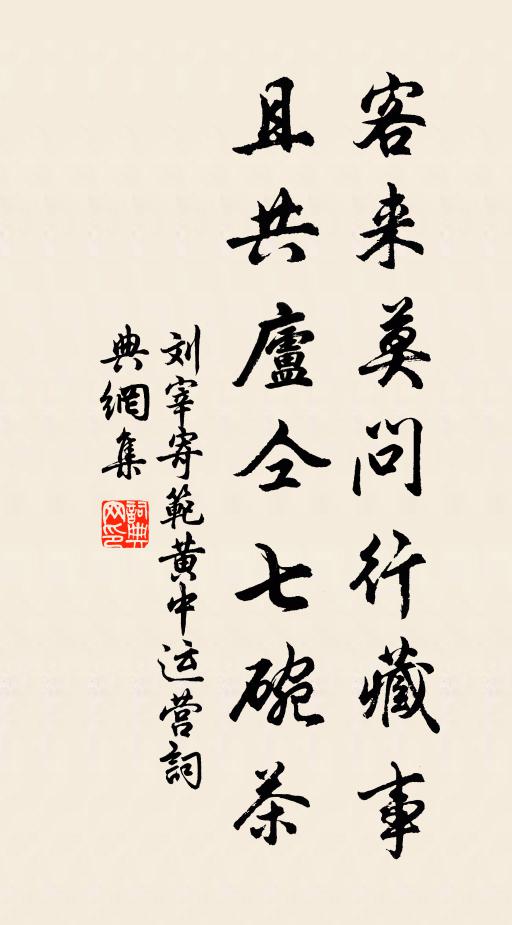 客来莫问行藏事
且共廬仝七碗茶
刘宰寄範黄中运营詞
典網集
詞典网印